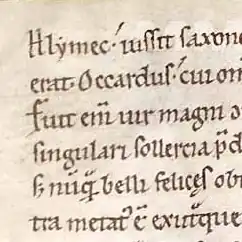 Hlymec· iussit saxone
erat Occardus· cui om
Fuit em̄ uir magni o
singulari sollercia p̄d
s; nūq̄ belli felices obt
tra metat᷒ ē exituque